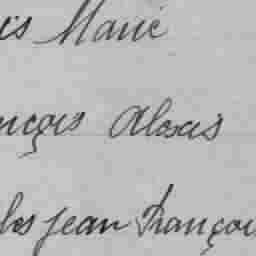 is Marie
nçois Alexis
les Jean Françoi